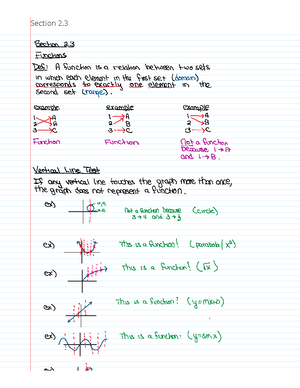 Section 2.3
Section 2.3
Functions
Def: A function is a relation between two sets
in which each element in the first set (domain)
corresponds to exactly one element in the
second set (range).
example example example
1 A 1 A 1 A
2 B 2 B 2 B
3 C 3 C 3 C
Function Function Not a function
because 1→A
and 1→B.
Vertical Line Test
If any vertical line touches the graph more than once,
the graph does not represent a function.
ex) Not a function because (circle)
ex) This is a function! (parabola/x²)
ex) This is a function! (√x)
ex) This is a function! (y=mx+b)
ex) This is a function! (y=sin x)